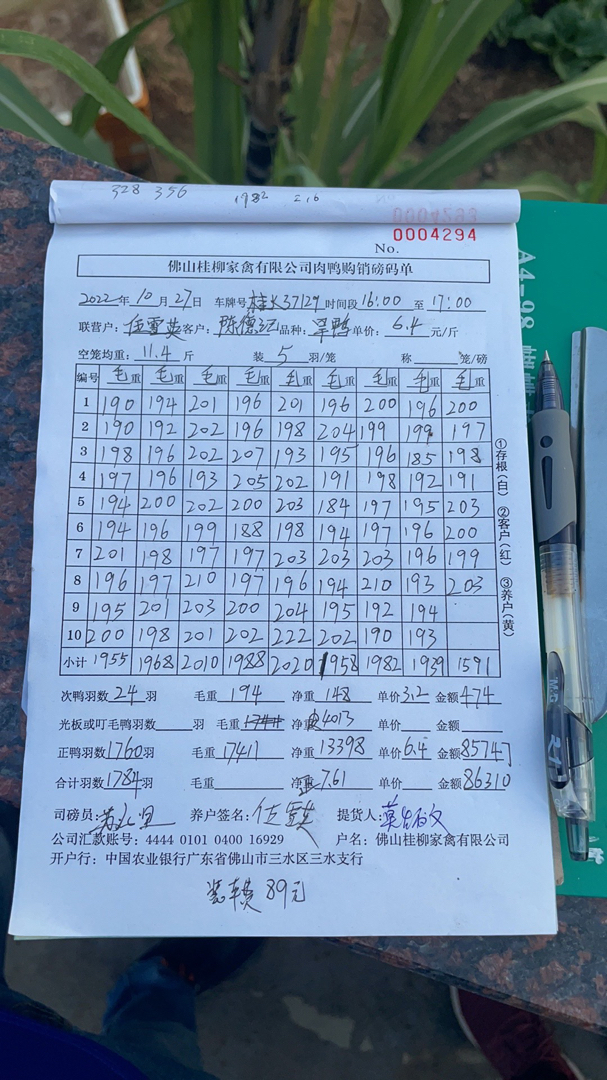 328 356 1982 216
0004293
No. 0004294
佛山桂柳家禽有限公司肉鸭购销磅码单
2022年10月27日 车牌号桂K37129时间段16:00至17:00
联营户:伍雪英 客户:陈德江 品种:旱鸭 单价:6.4元/斤
空笼均重:11.4斤 装5羽/笼 称 笼/磅
编号 毛重 毛重 毛重 毛重 毛重 毛重 毛重 毛重 毛重
1 190 194 201 196 201 196 200 196 200
2 190 192 202 196 198 204 199 199 197
3 198 196 202 207 193 195 196 185 198
4 197 196 193 205 202 191 198 192 191
5 194 200 202 200 203 184 197 195 203
6 194 196 199 188 198 194 197 196 200
7 201 198 197 197 203 203 203 196 199
8 196 197 210 197 196 194 210 193 203
9 195 201 203 200 204 195 192 194
10 200 198 201 202 222 202 190 193
小计 1955 1968 2010 1988 2020 1958 1982 1939 1591
次鸭羽数24羽 毛重194 净重148 单价3.2 金额474
光板或叮毛鸭羽数 羽 毛重 净重4013 单价 金额
正鸭羽数1760羽 毛重17411 净重13398 单价6.4 金额85747
合计羽数1784羽 毛重 净重7.61 单价 金额86310
司磅员: 养户签名:伍雪英 提货人:
公司汇款账号:4444 0101 0400 16929 户名:佛山桂柳家禽有限公司
开户行:中国农业银行广东省佛山市三水区三水支行
装车费 89元
①存根(白) ②客户(红) ③养户(黄)
A4-98